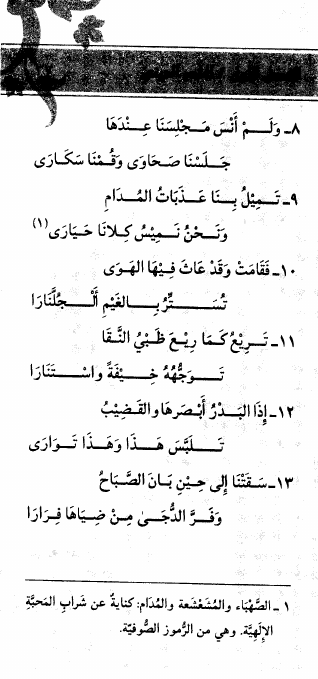 ٨ـ وَلَـــمْ أَنْسَ مَـجْلِسَنَا عِـنْدَهَا
جَـلَسْنَا صَحَاوَى وَقُـمْنَا سَكَارَى
٩ـ تَـمِيْلُ بِـنَا عَـذَبَاتُ الـمُـدَامِ
وَنَـحْنُ نَـمِيْسُ كِـلانَا حَـيَارَى (١)
١٠ـ فَـقَامَتْ وَقَدْ عَاثَ فِيْهَا الهَوَى
تُـسَـتِّـرُ بِـالغَيْمِ الْـجُلَّنَارَا
١١ـ تَـرِيْعُ كَـمَا رِيْـعَ ظَـبْيُ النَّـقَا
تَـوَجُّهُهُ خِـيْفَةً واسْـتَنَارَا
١٢ـ إِذَا البَـدْرُ أَبْـصَرَهَا والقَضِيْبُ
تَـلَبَّسَ هَـذَا وَهَـذَا تَـوَارَى
١٣ـ سَـقَتْنَا إلى حِـيْنِ بَـانَ الصَّـبَاحُ
وَفَـرَّ الدُّجَـىٰ مِـنْ ضِيَاهَا فِـرَارَا
١ ـ الصَّهْبَاء والمُشَعْشَعة والمُدَام: كنايةٌ عن شَرابِ المَحبَّةِ
الإلَهيَّة. وهي من الرُّموز الصُّوفيّة.